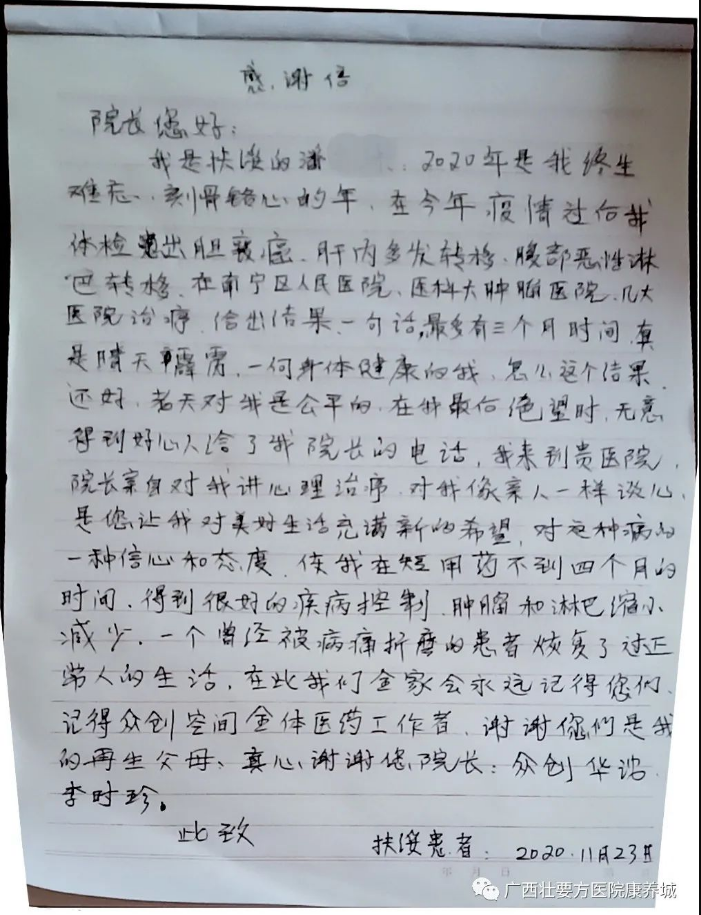 感谢信
院长您好：
我是扶绥的潘 2020年是我终生
难忘、刻骨铭心的年，在今年疫情过后我
体检 出胆囊癌、肝内多发转移、腹部恶性淋
巴转移。在南宁区人民医院、医科大肿瘤医院、几大
医院治疗，给出结果一句话，最多有三个月时间，真
是晴天霹雳，一向身体健康的我，怎么这个结果
还好，老天对我是公平的，在我最后绝望时，无意
得到好心人给了我院长的电话，我来到贵医院，
院长亲自对我讲心理治疗，对我像亲人一样谈心，
是您让我对美好生活充满新的希望，对这种病的
一种信心和态度，使我在短用药不到四个月的
时间，得到很好的疾病控制，肿瘤和淋巴缩小
减少，一个曾经被病痛折磨的患者恢复了过正
常人的生活，在此我们全家会永远记得您们、
记得众创空间全体医药工作者，谢谢您们是我
的再生父母、真心谢谢您，院长：众创华 
李时珍。
此致
扶绥患者：2020.11月23日
年 月 日
广西壮要方医院康养城